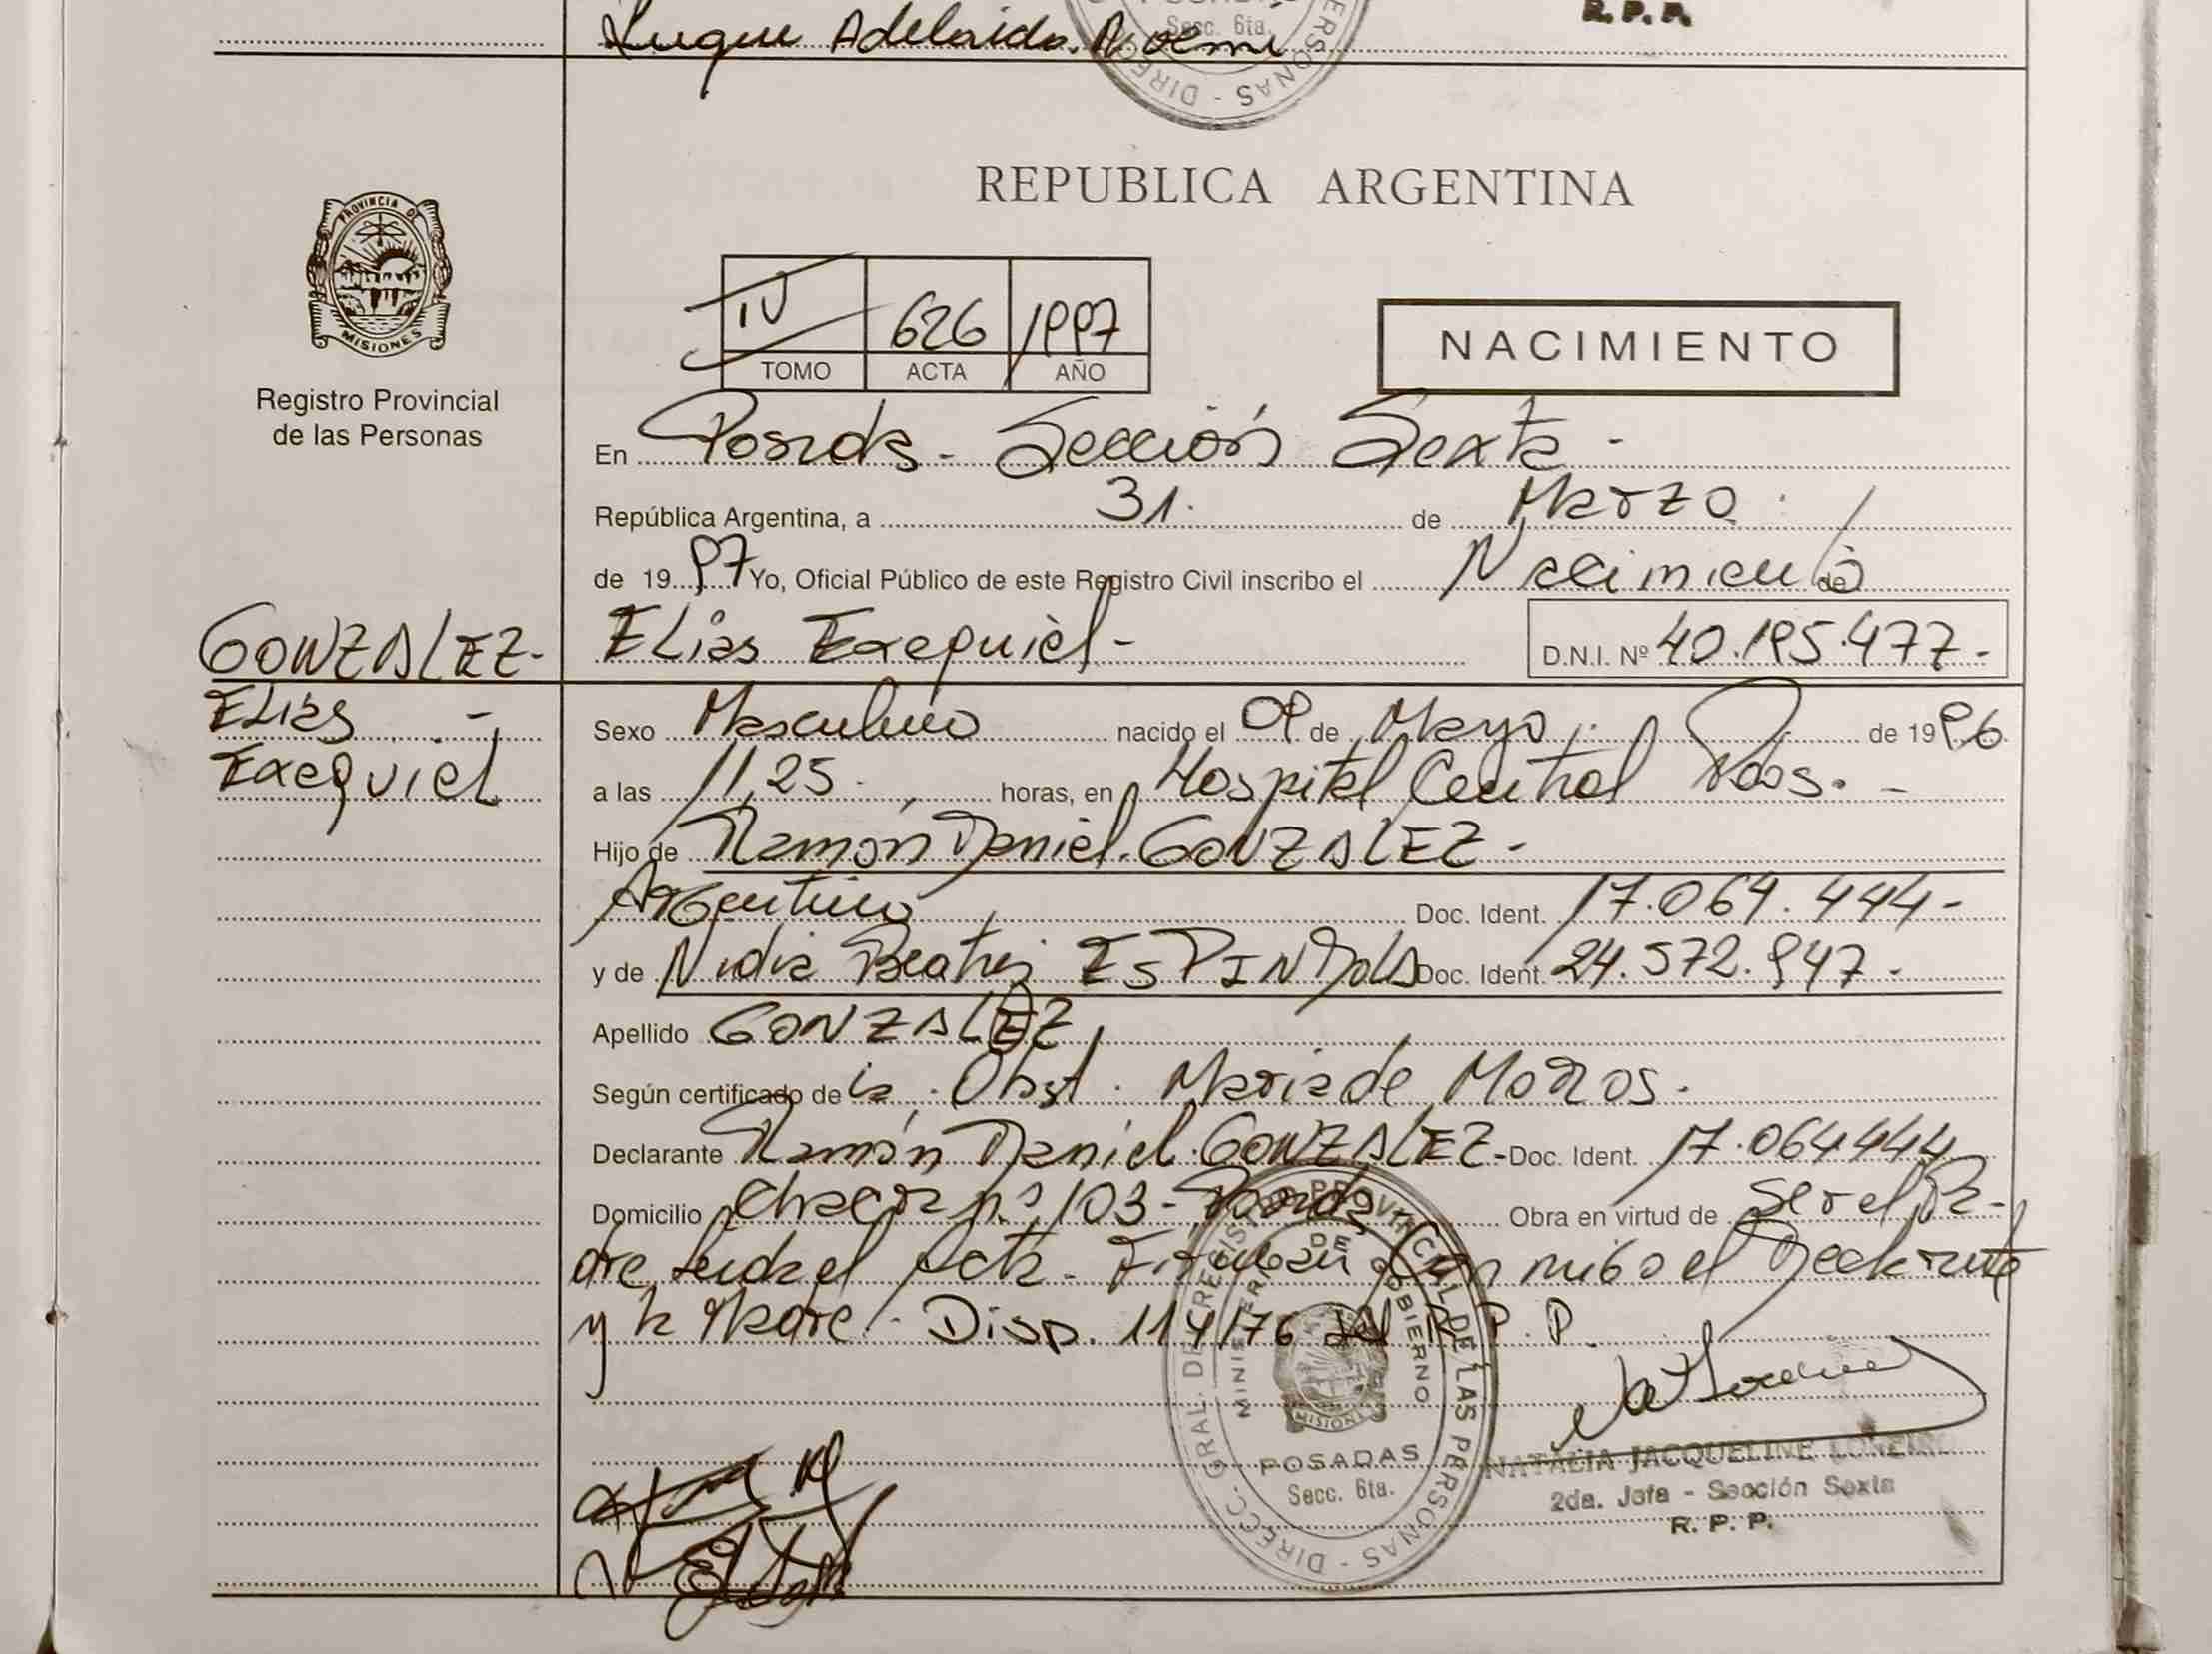 Luque Adelaida Noemi
R. P. P.
Secc. 6ta.
DIRECC
PERSONAS
REPUBLICA ARGENTINA
PROVINCIA DE
MISIONES
Registro Provincial
de las Personas
IV 626 1997
TOMO ACTA AÑO
NACIMIENTO
En Posadas - Sección Sexta -
República Argentina, a 31. de Marzo
de 1997 Yo, Oficial Público de este Registro Civil inscribo el Nacimiento de
GONZALEZ - Elias Exequiel - D.N.I. Nº 40.195.477 -
Elias -
Exequiel
Sexo Masculino nacido el 09 de Mayo de 1996
a las 11,25 horas, en Hospital Central Pdas. -
Hijo de Ramón Daniel GONZALEZ -
Argentino Doc. Ident. 17.064.444 -
y de Nidia Beatriz ESPINDOLA Doc. Ident. 24.572.947 -
Apellido GONZALEZ
Según certificado de la Obst. Maria de Morros.
Declarante Ramón Daniel GONZALEZ - Doc. Ident. 17.064444
Domicilio Chacra n.º 103 - Posadas - Obra en virtud de ser el Pa-
dre, Leida el Acta - Firman Con migo el Declarante
y la Madre. - Disp. 114/76 del R. P. P.
DIRECC. GRAL. DE REGISTRO PROVINCIAL DE LAS PERSONAS
MINISTERIO DE GOBIERNO
MISIONES
POSADAS
Secc. 6ta.
NATALIA JACQUELINE
2da. Jefa - Sección Sexta
R. P. P.